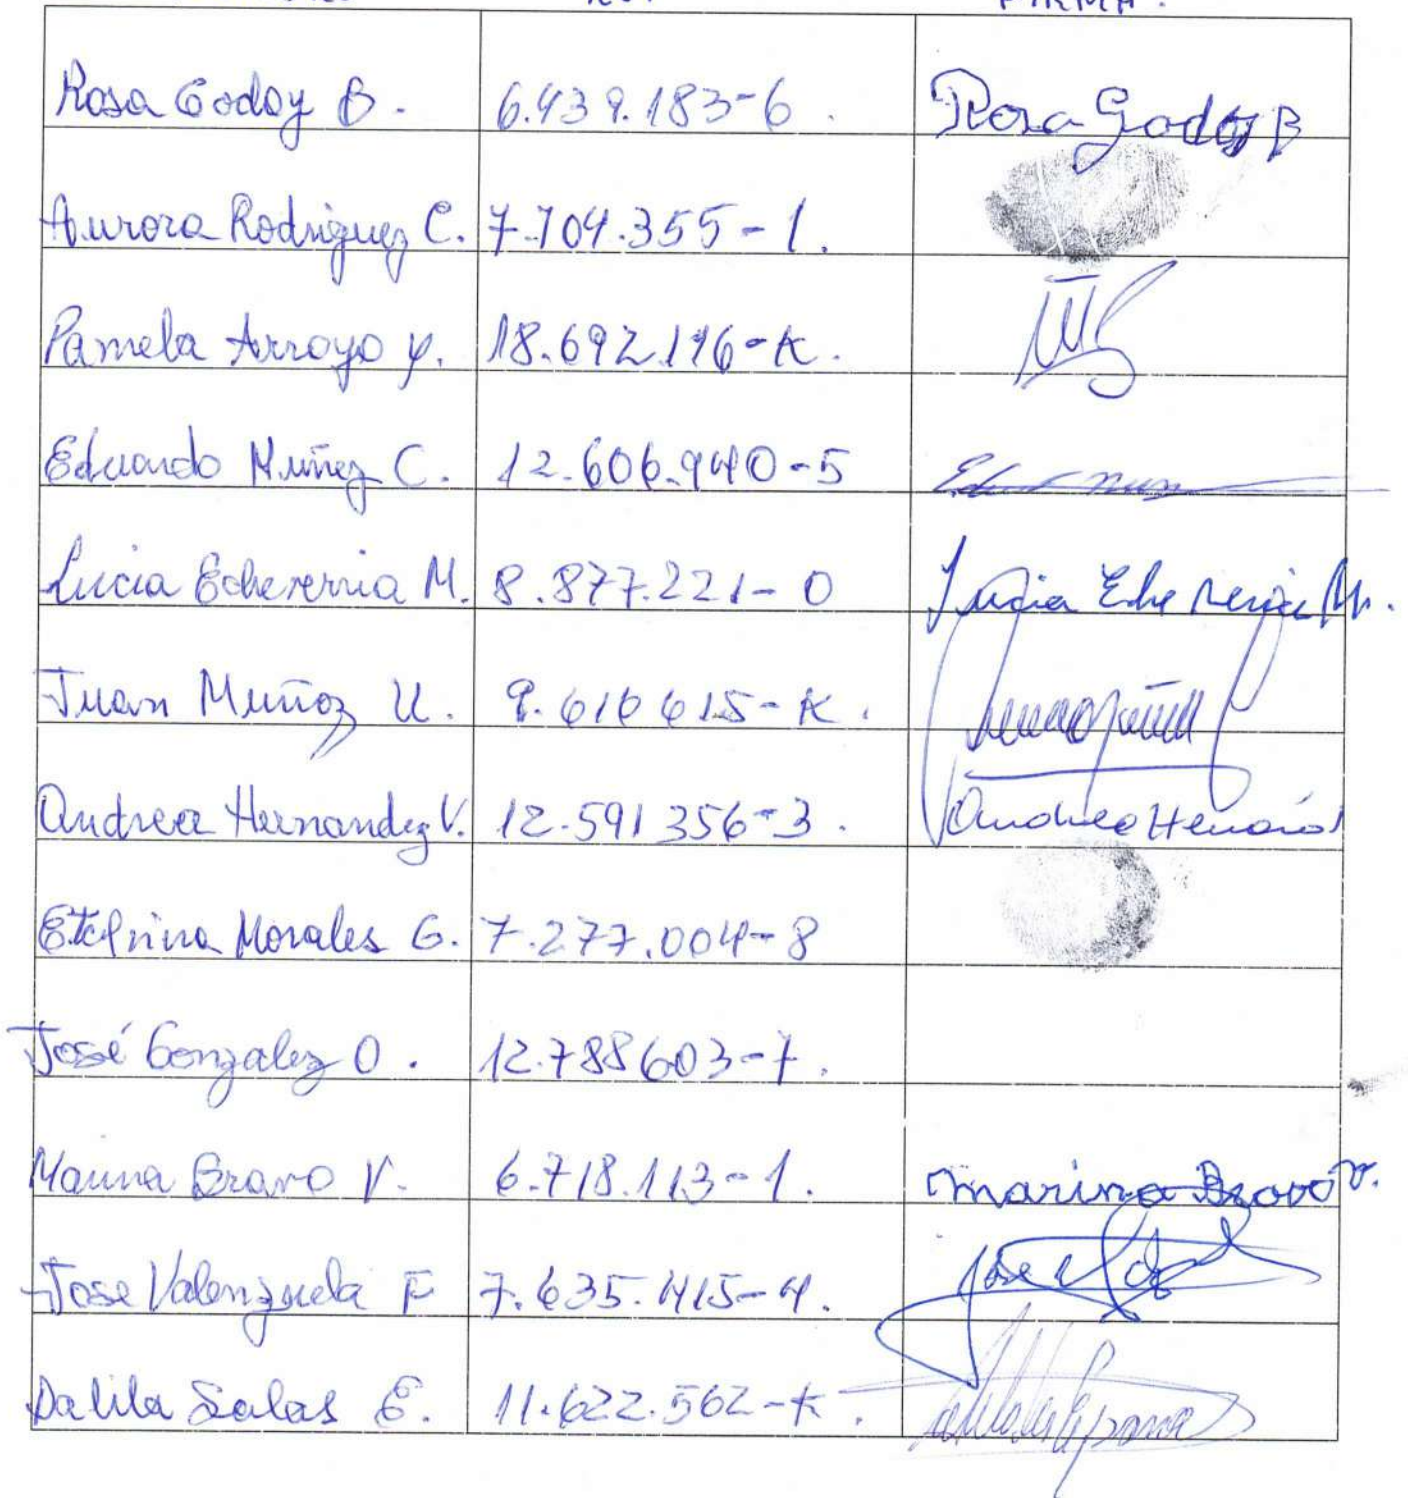 FIRMA.
Rosa Godoy B. 6.939.183-6. Rosa Godoy B
Aurora Rodriguez C. 7.704.355-1.
Pamela Arroyo y. 18.692.116-K.
Eduardo Muñoz C. 12.606.940-5
Lucia Echeverria M. 8.877.221-0 Lucia Echeverria M.
Juan Muñoz U. 9.616 615-K.
Andrea Hernandez V. 12.591 356-3.
Etelvina Morales G. 7.277.004-8
José Gonzalez O. 12.788603-7.
Marina Bravo V. 6.718.113-1. Marina Bravo V.
Jose Valenzuela F 7.635.415-4.
Dalila Salas E. 11.622.562-K.